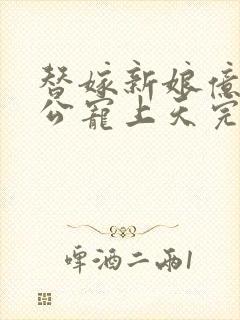 替嫁新娘億
公寵上天完
啤酒二兩1